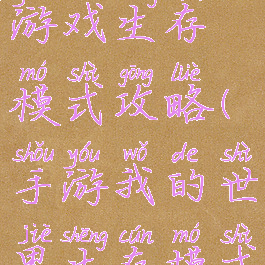 游戏生存
mó shì gōng lüè
模式攻略(
shǒu yóu wǒ de shì
手游我的世
jiè shēng cún mó shì
界生存模式